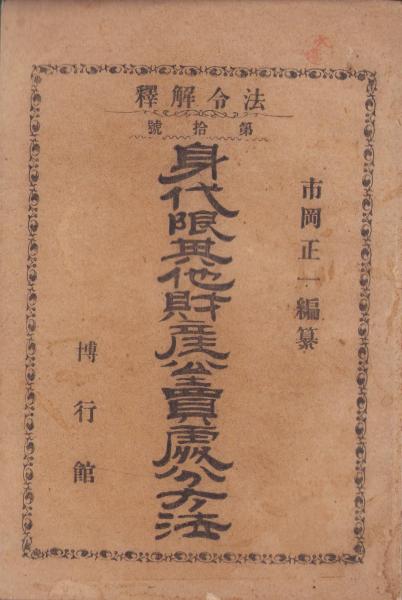 法令解釋
第拾號
市岡正一編纂
身代限其他財産公賣處分方法
博行館